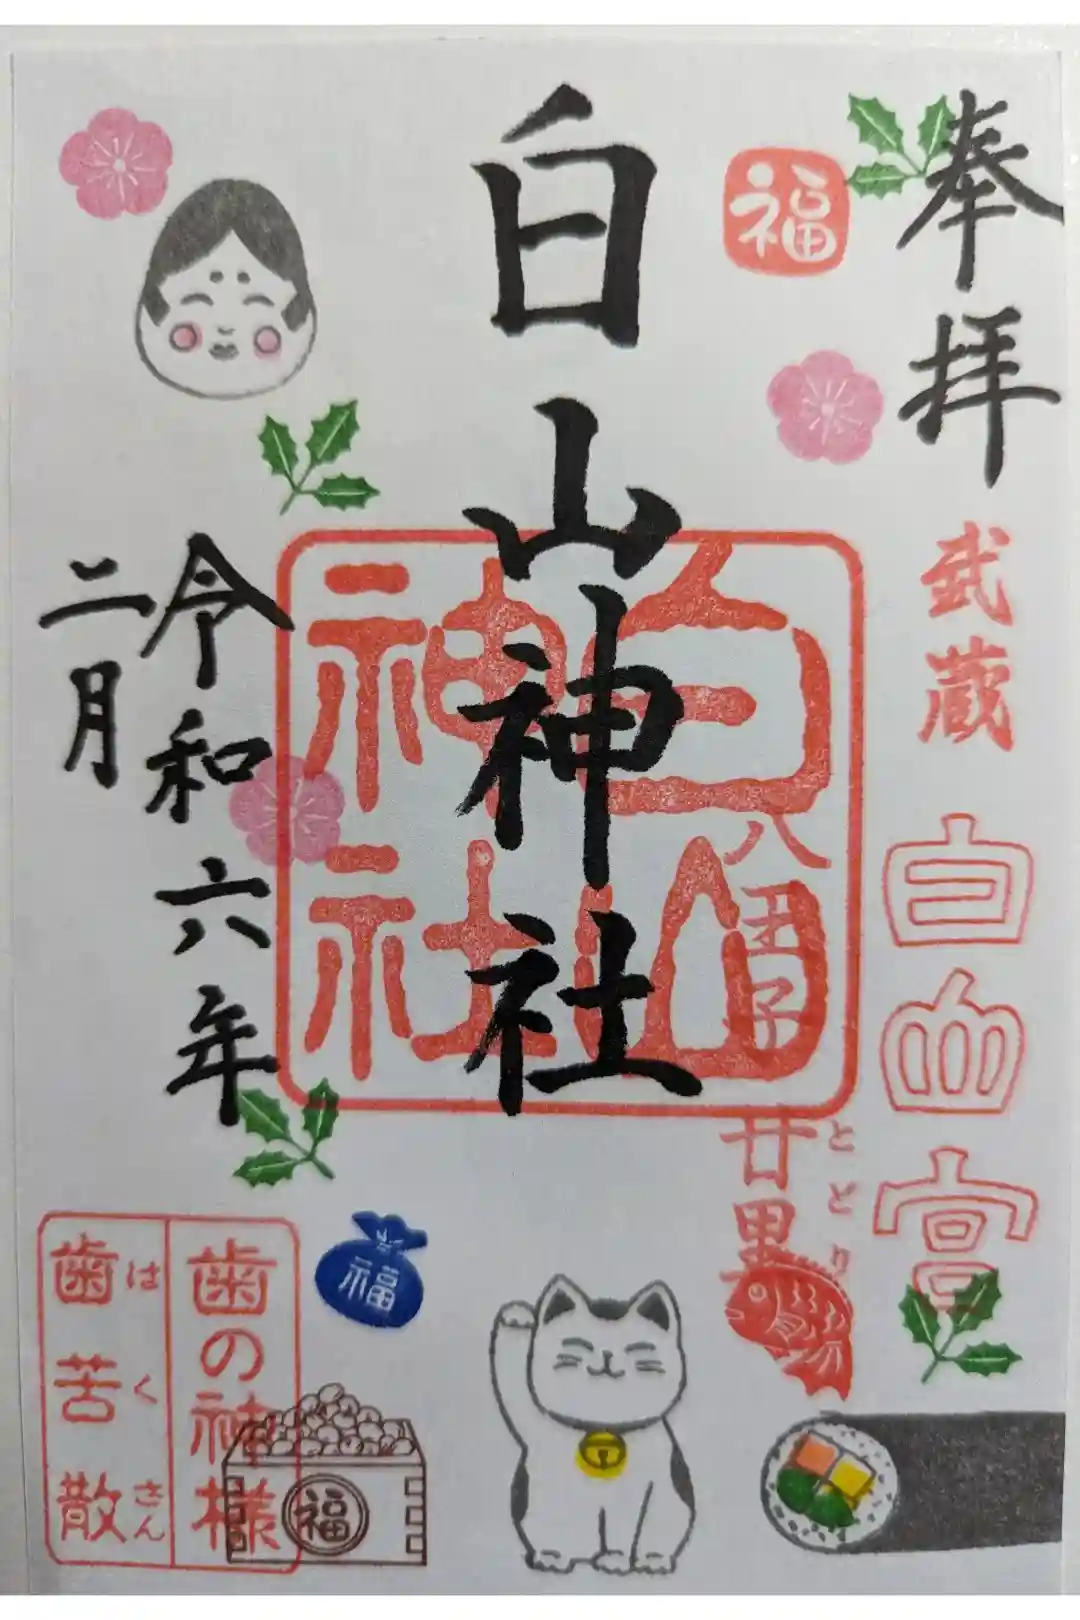 奉拝
福
武蔵
白山宮
八王子
廿里
とどり
白山神社
白山
神社
令和六年
二月
福
歯の神様
歯苦散
はくさん
福